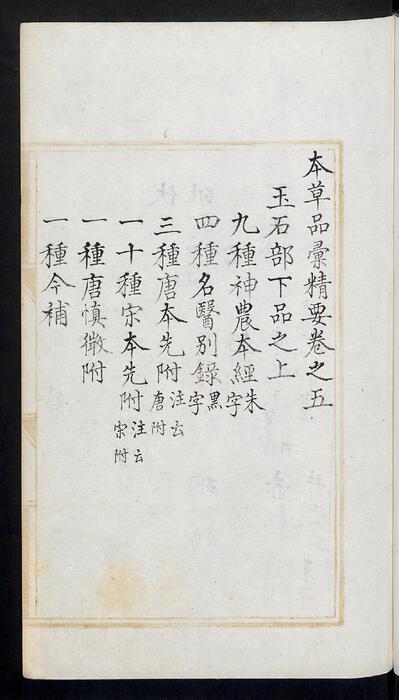 本草品彙精要卷之五
玉石部下品之上
九種神農本經朱字
四種名醫別錄黑字
三種唐本先附注云唐附
一十種宋本先附注云宋附
一種唐慎微附
一種今補